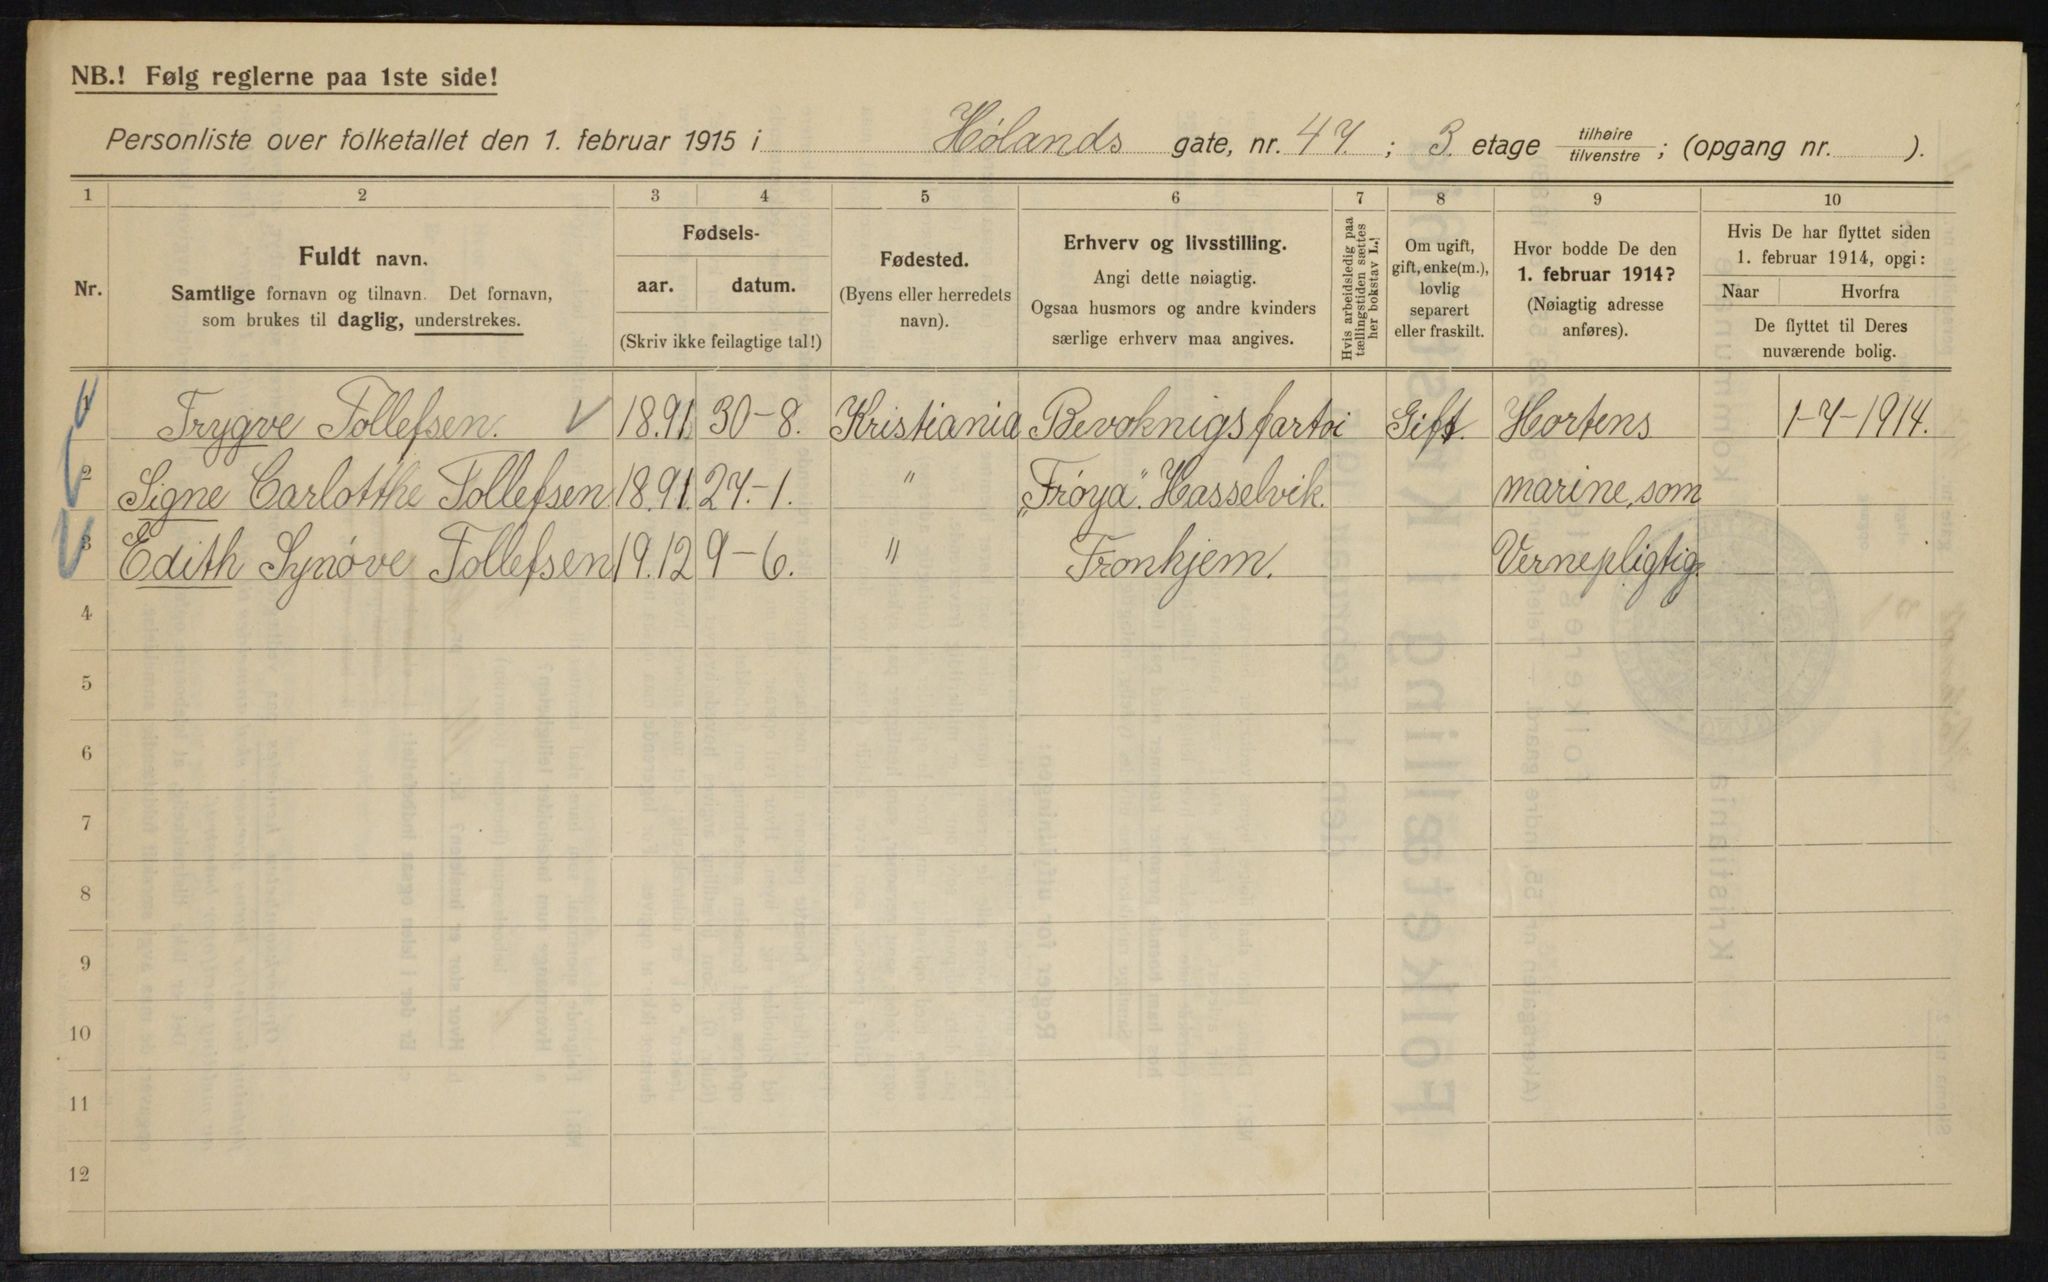 NB.! Følg reglerne paa 1ste side!
Personliste over folketallet den 1. februar 1915 i Hølands gate, nr. 47. ; 3. etage tilhøire / tilvenstre ; (opgang nr. ).
1 2 3 4 5 6 7 8 9 10
Nr.
Fuldt navn.
Samtlige fornavn og tilnavn. Det fornavn,
som brukes til daglig, understrekes.
Fødsels-
aar. datum.
(Skriv ikke feilagtige tal!)
Fødested.
(Byens eller herredets
navn).
Erhverv og livsstilling.
Angi dette nøiagtig.
Ogsaa husmors og andre kvinders
særlige erhverv maa angives.
Hvis arbeidsledig paa
tællingstiden sættes
her bokstav L.!
Om ugift,
gift, enke(m.),
lovlig
separert
eller fraskilt.
Hvor bodde De den
1. februar 1914?
(Nøiagtig adresse
anføres).
Hvis De har flyttet siden
1. februar 1914, opgi:
Naar Hvorfra
De flyttet til Deres
nuværende bolig.
1 Trygve Tollefsen. 18.91. 30-8. Kristiania Bevoknigsfartøi Gift. Hortens 1-7-1914.
2 Signe Carlotthe Tollefsen 18.91. 27.-1. " „Frøya". Hasselvik. marine, som
3 Edith Synøve Tollefsen 19.12 9-6. " Tronhjem. Vernepligtig.
4
5
6
7
8
9
10
11
12